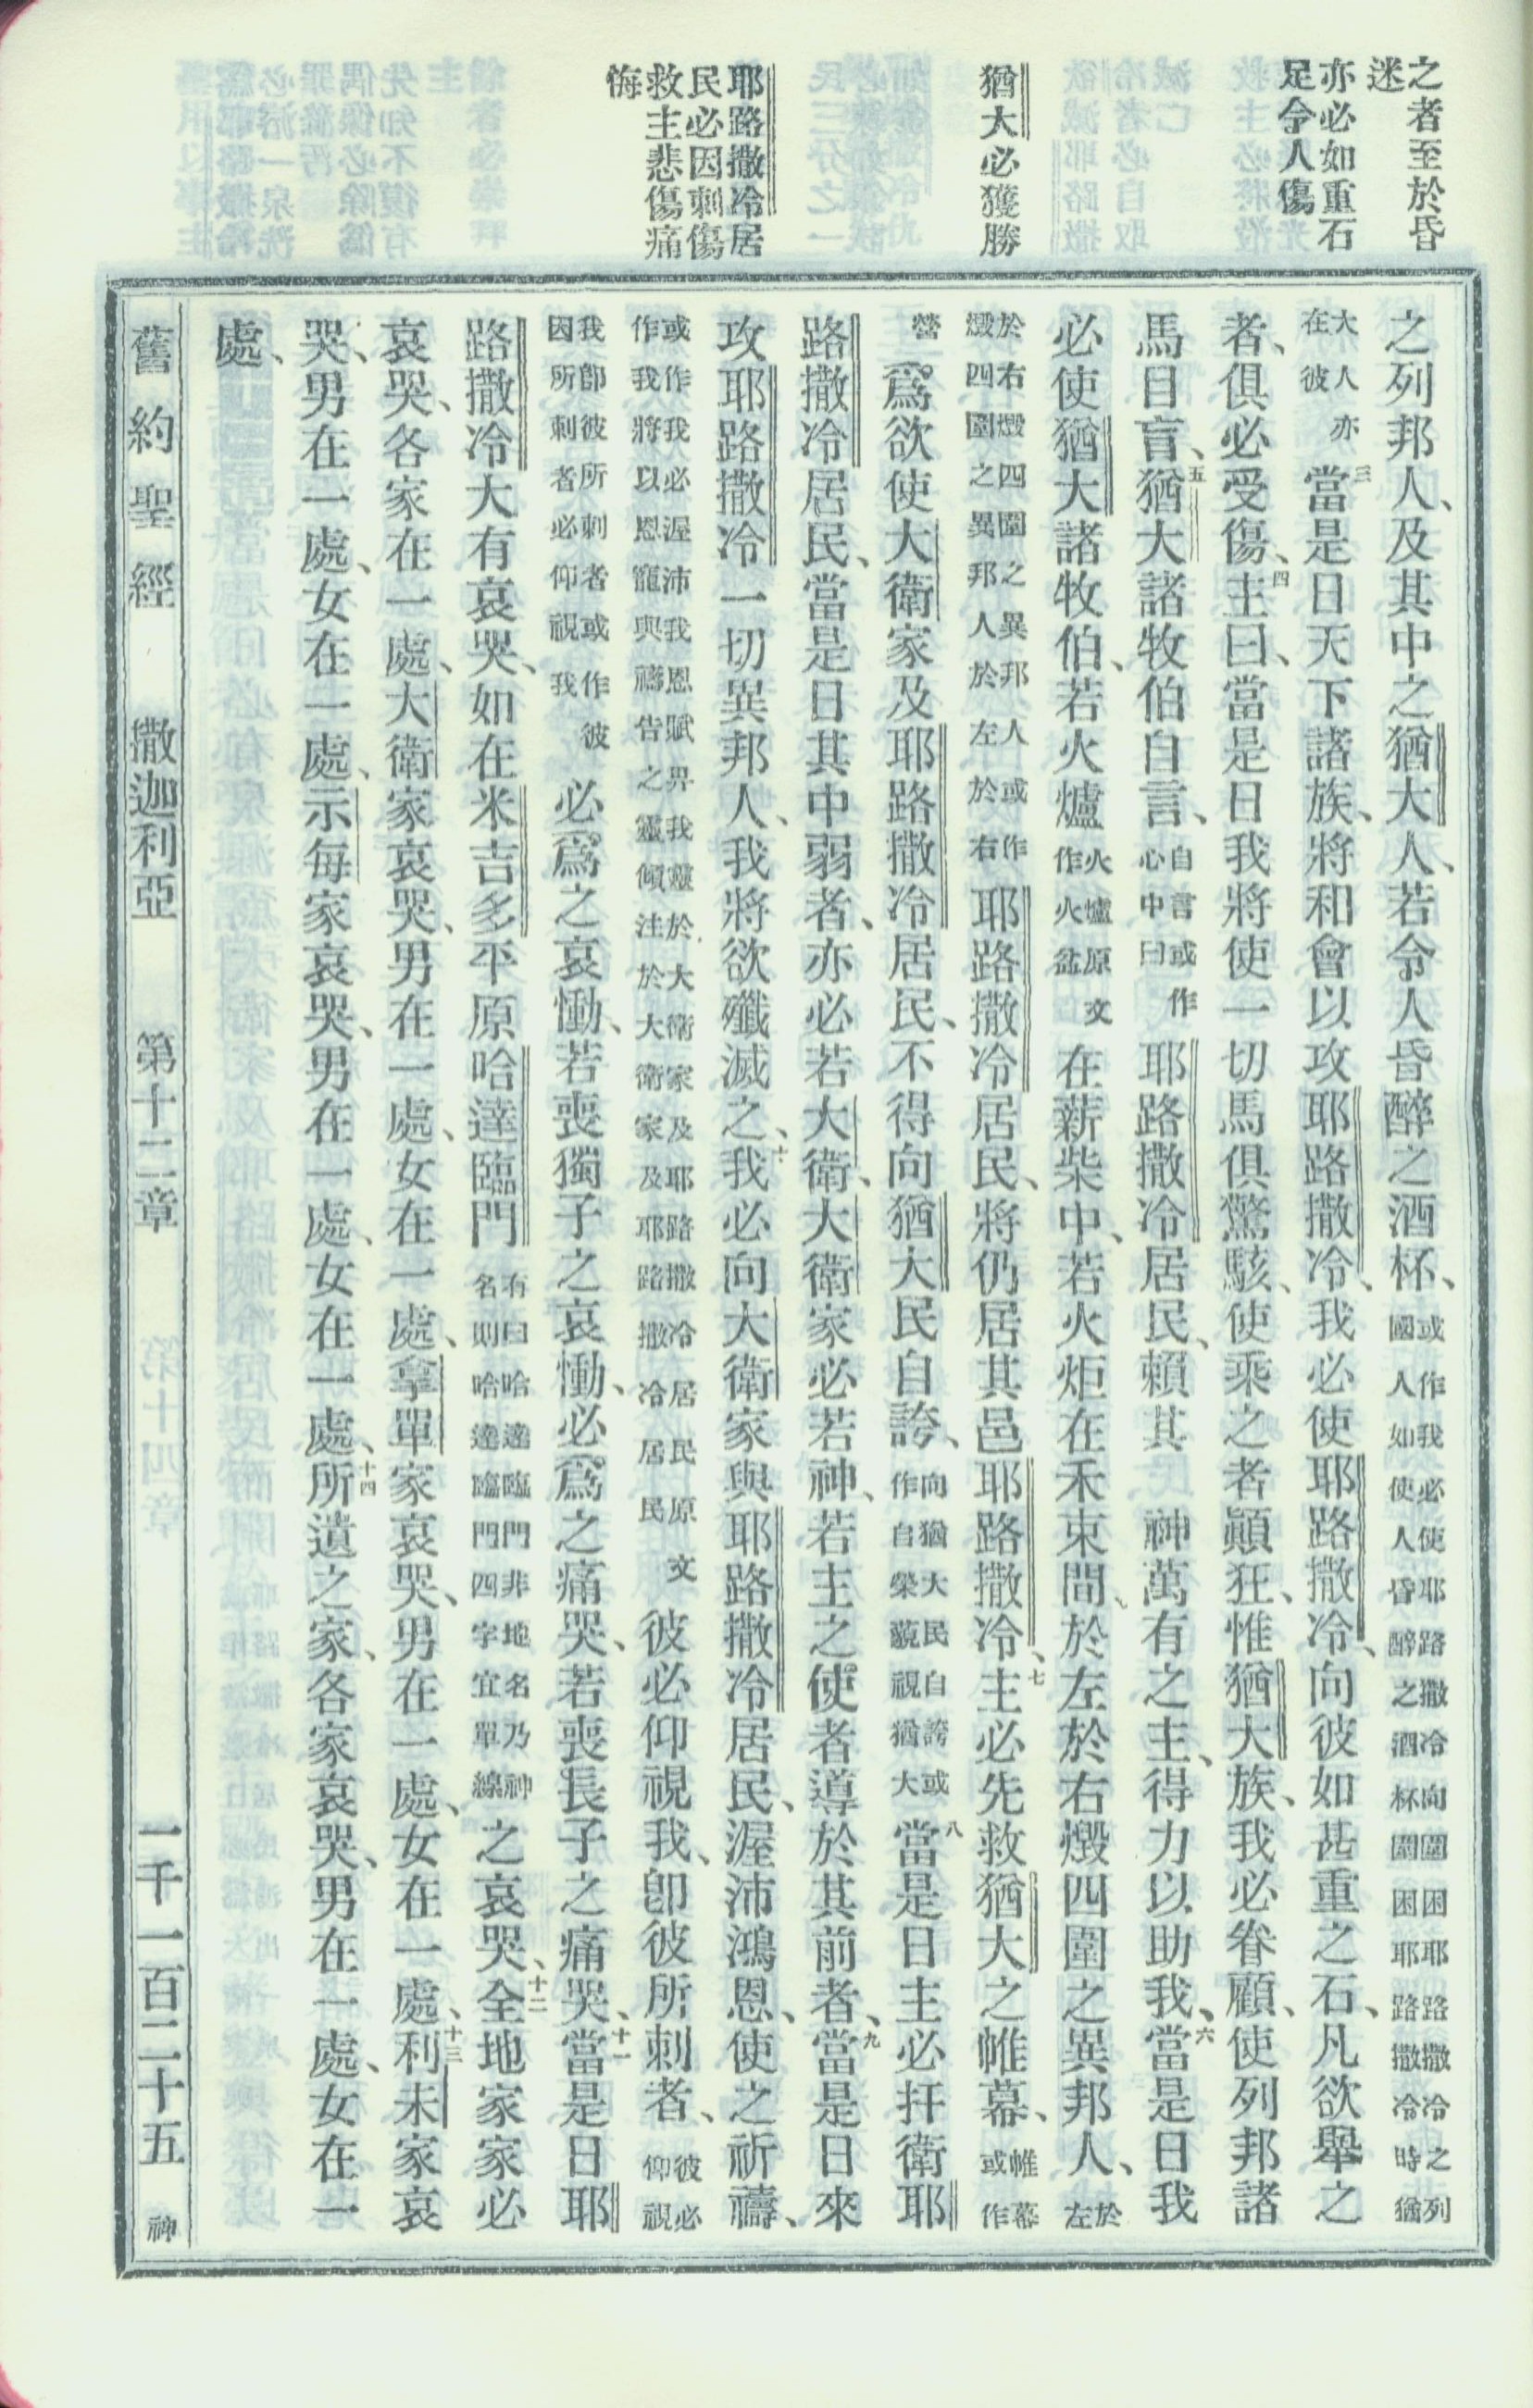 之者至於昏
迷
亦必如重石
足令人傷
猶大必獲勝
耶路撒冷居
民必因刺傷
救主悲傷痛
悔
之列邦人、及其中之猶大人、若令人昏醉之酒杯、或作我必使耶路撒冷向圍困耶路撒冷之列國人如使人昏醉之酒杯圍困耶路撒冷時猶
大人亦在彼三當是日天下諸族、將和會以攻耶路撒冷、我必使耶路撒冷、向彼如甚重之石、凡欲舉之
者、俱必受傷、四主曰、當是日我將使一切馬俱驚駭、使乘之者顚狂、惟猶大族、我必眷顧、使列邦諸
馬目盲、五猶大諸牧伯自言、自言或作心中曰耶路撒冷居民、賴其 神萬有之主、得力以助我、六當是日我
必使猶大諸牧伯、若火爐火爐原文作火盆在薪柴中、若火炬在禾束間、於左於右燬四圍之異邦人、於左
於右燬四圍之異邦人或作燬四圍之異邦人於左於右耶路撒冷居民、將仍居其邑耶路撒冷、七主必先救猶大之帷幕、帷幕或作
營爲欲使大衛家及耶路撒冷居民、不得向猶大民自誇、向猶大民自誇或作自榮藐視猶大八當是日主必扞衛耶
路撒冷居民、當是日其中弱者、亦必若大衛、大衛家必若神、若主之使者導於其前者、九當是日來
攻耶路撒冷一切異邦人、我將欲殲滅之、十我必向大衛家與耶路撒冷居民、渥沛鴻恩、使之祈禱、
或作我必渥沛我恩賦畀我靈於大衛家及耶路撒冷居民原文作我將以恩寵與禱告之靈傾注於大衛家及耶路撒冷居民彼必仰視我、卽彼所刺者、彼必仰視
我卽彼所刺者或作彼因所刺者必仰視我必爲之哀慟、若喪獨子之哀慟、必爲之痛哭、若喪長子之痛哭、十一當是日耶
路撒冷大有哀哭、如在米吉多平原哈達臨門有曰哈達臨門非地名乃神名則哈達臨門四字宜單線之哀哭、十二全地家家必
哀哭、各家在一處、大衛家哀哭、男在一處、女在一處、拿單家哀哭、男在一處、女在一處、十三利未家哀
哭、男在一處、女在一處、示每家哀哭、男在一處、女在一處、十四所遺之家、各家哀哭、男在一處、女在一
處、
舊約聖經 撒迦利亞 第十二章 一千一百二十五 神